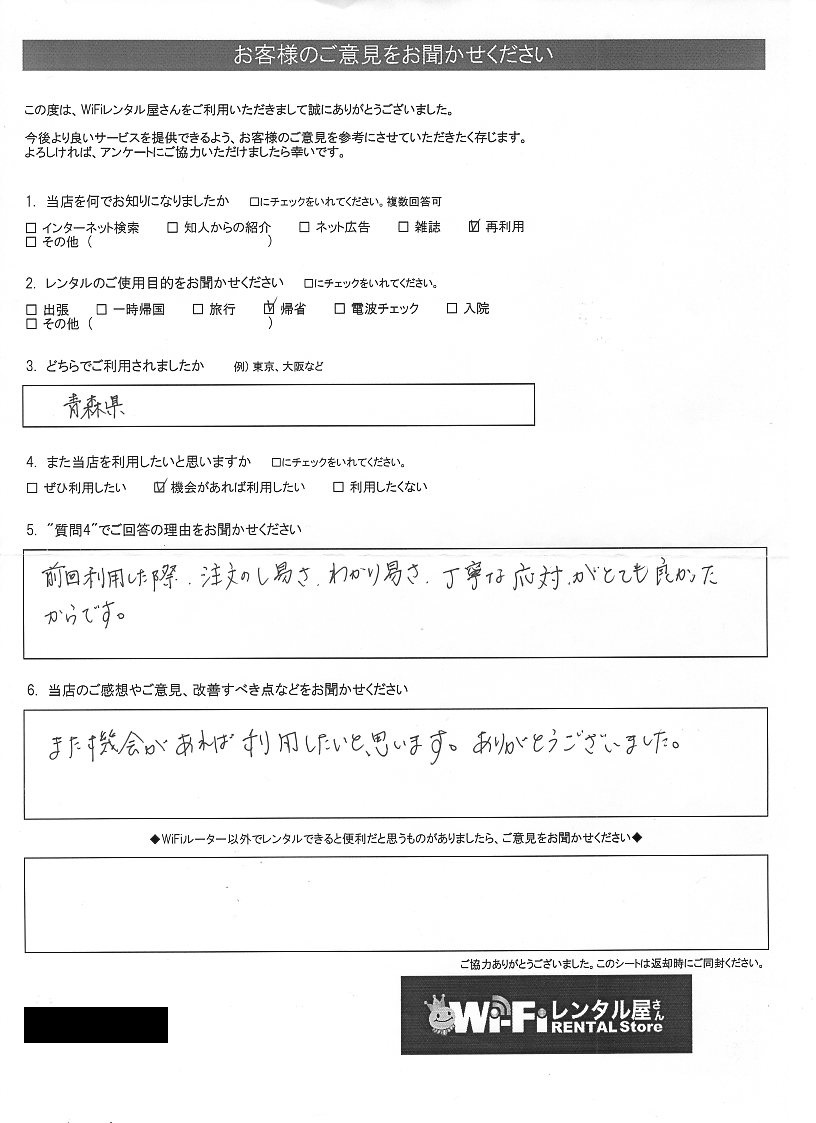 お客様のご意見をお聞かせください
この度は、WiFiレンタル屋さんをご利用いただきまして誠にありがとうございました。
今後より良いサービスを提供できるよう、お客様のご意見を参考にさせていただきたく存じます。
よろしければ、アンケートにご協力いただけましたら幸いです。
1. 当店を何でお知りになりましたか □にチェックをいれてください。複数回答可
□ インターネット検索 □ 知人からの紹介 □ ネット広告 □ 雑誌 ☑ 再利用
□ その他 ( )
2. レンタルのご使用目的をお聞かせください □にチェックをいれてください。
□ 出張 □ 一時帰国 □ 旅行 ☑ 帰省 □ 電波チェック □ 入院
□ その他 ( )
3. どちらでご利用されましたか 例) 東京、大阪など
青森県
4. また当店を利用したいと思いますか □にチェックをいれてください。
□ ぜひ利用したい ☑ 機会があれば利用したい □ 利用したくない
5. "質問4"でご回答の理由をお聞かせください
前回利用した際、注文のし易さ、わかり易さ、丁寧な応対、がとても良かった
からです。
6. 当店のご感想やご意見、改善すべき点などをお聞かせください
また機会があれば利用したいと思います。ありがとうございました。
◆WiFiルーター以外でレンタルできると便利だと思うものがありましたら、ご意見をお聞かせください◆
ご協力ありがとうございました。このシートは返却時にご同封ください。
Wi-Fiレンタル屋さん
RENTAL Store